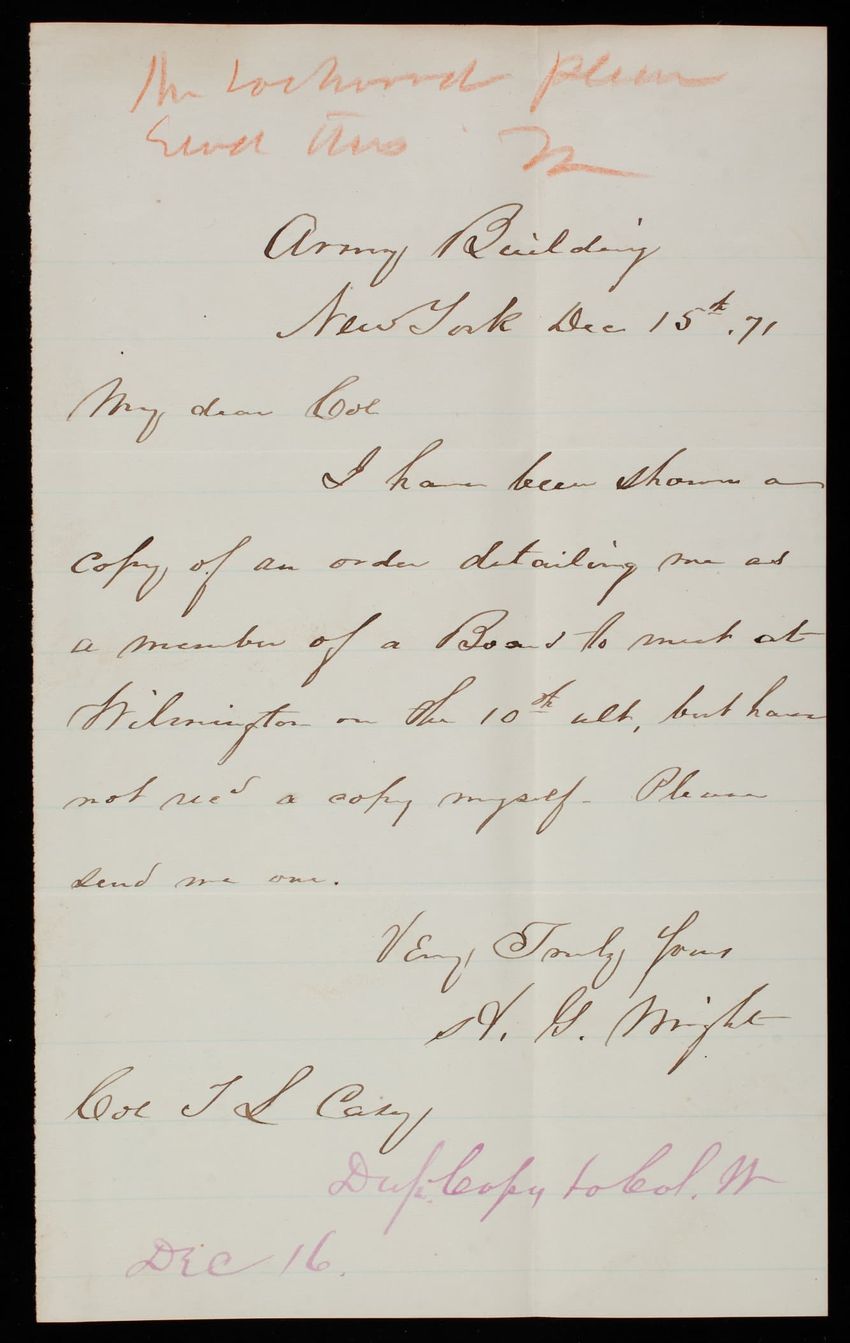 Mr Lockwood please
Send this
Army Building
New York Dec 15th. 71
My dear Col
I have been shown a
copy of an order detailing me as
a member of a Board to meet at
Wilmington on the 10th ult, but have
not recd a copy myself. Please
send me one.
Very Truly yours
H. G. Wright
Col T L Casey
Dup. Copy to Col. W
Dec 16.